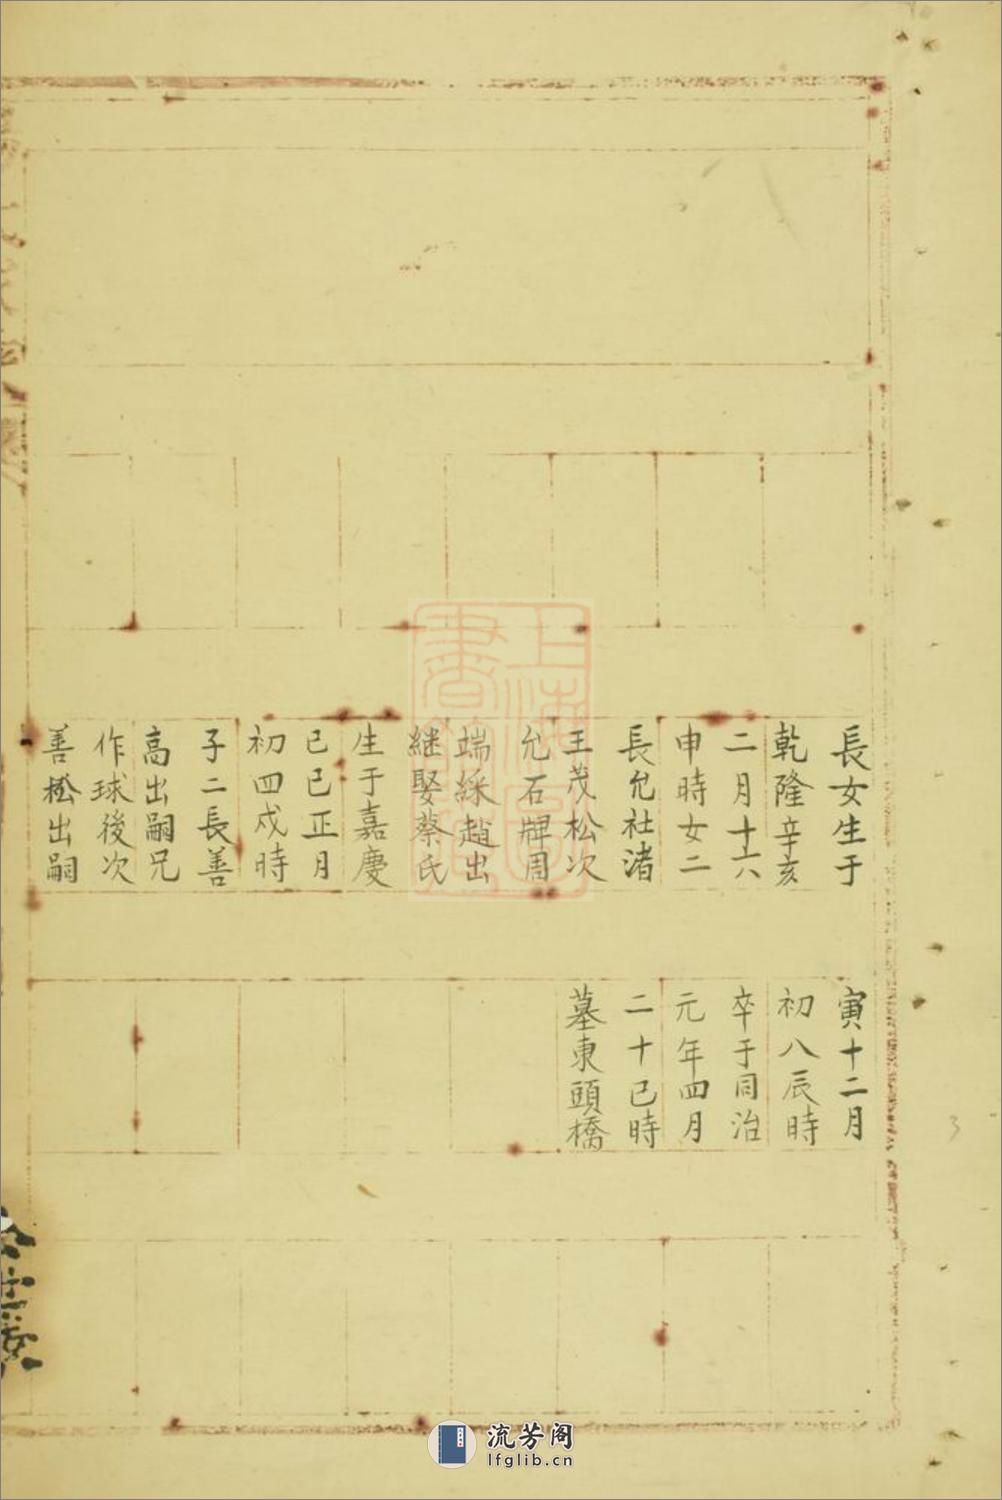 長女生于
乾隆辛亥
二月十六
申時女二
長允社渚
王茂松次
允石牌周
端綵趙出
継娶蔡氏
生于嘉慶
己巳正月
初四戌時
子二長善
高出嗣兄
作球後次
善松出嗣
寅十二月
初八辰時
卒于同治
元年四月
二十巳時
墓東頭橋
上海圖
書館藏
流芳阁
lfglib.cn